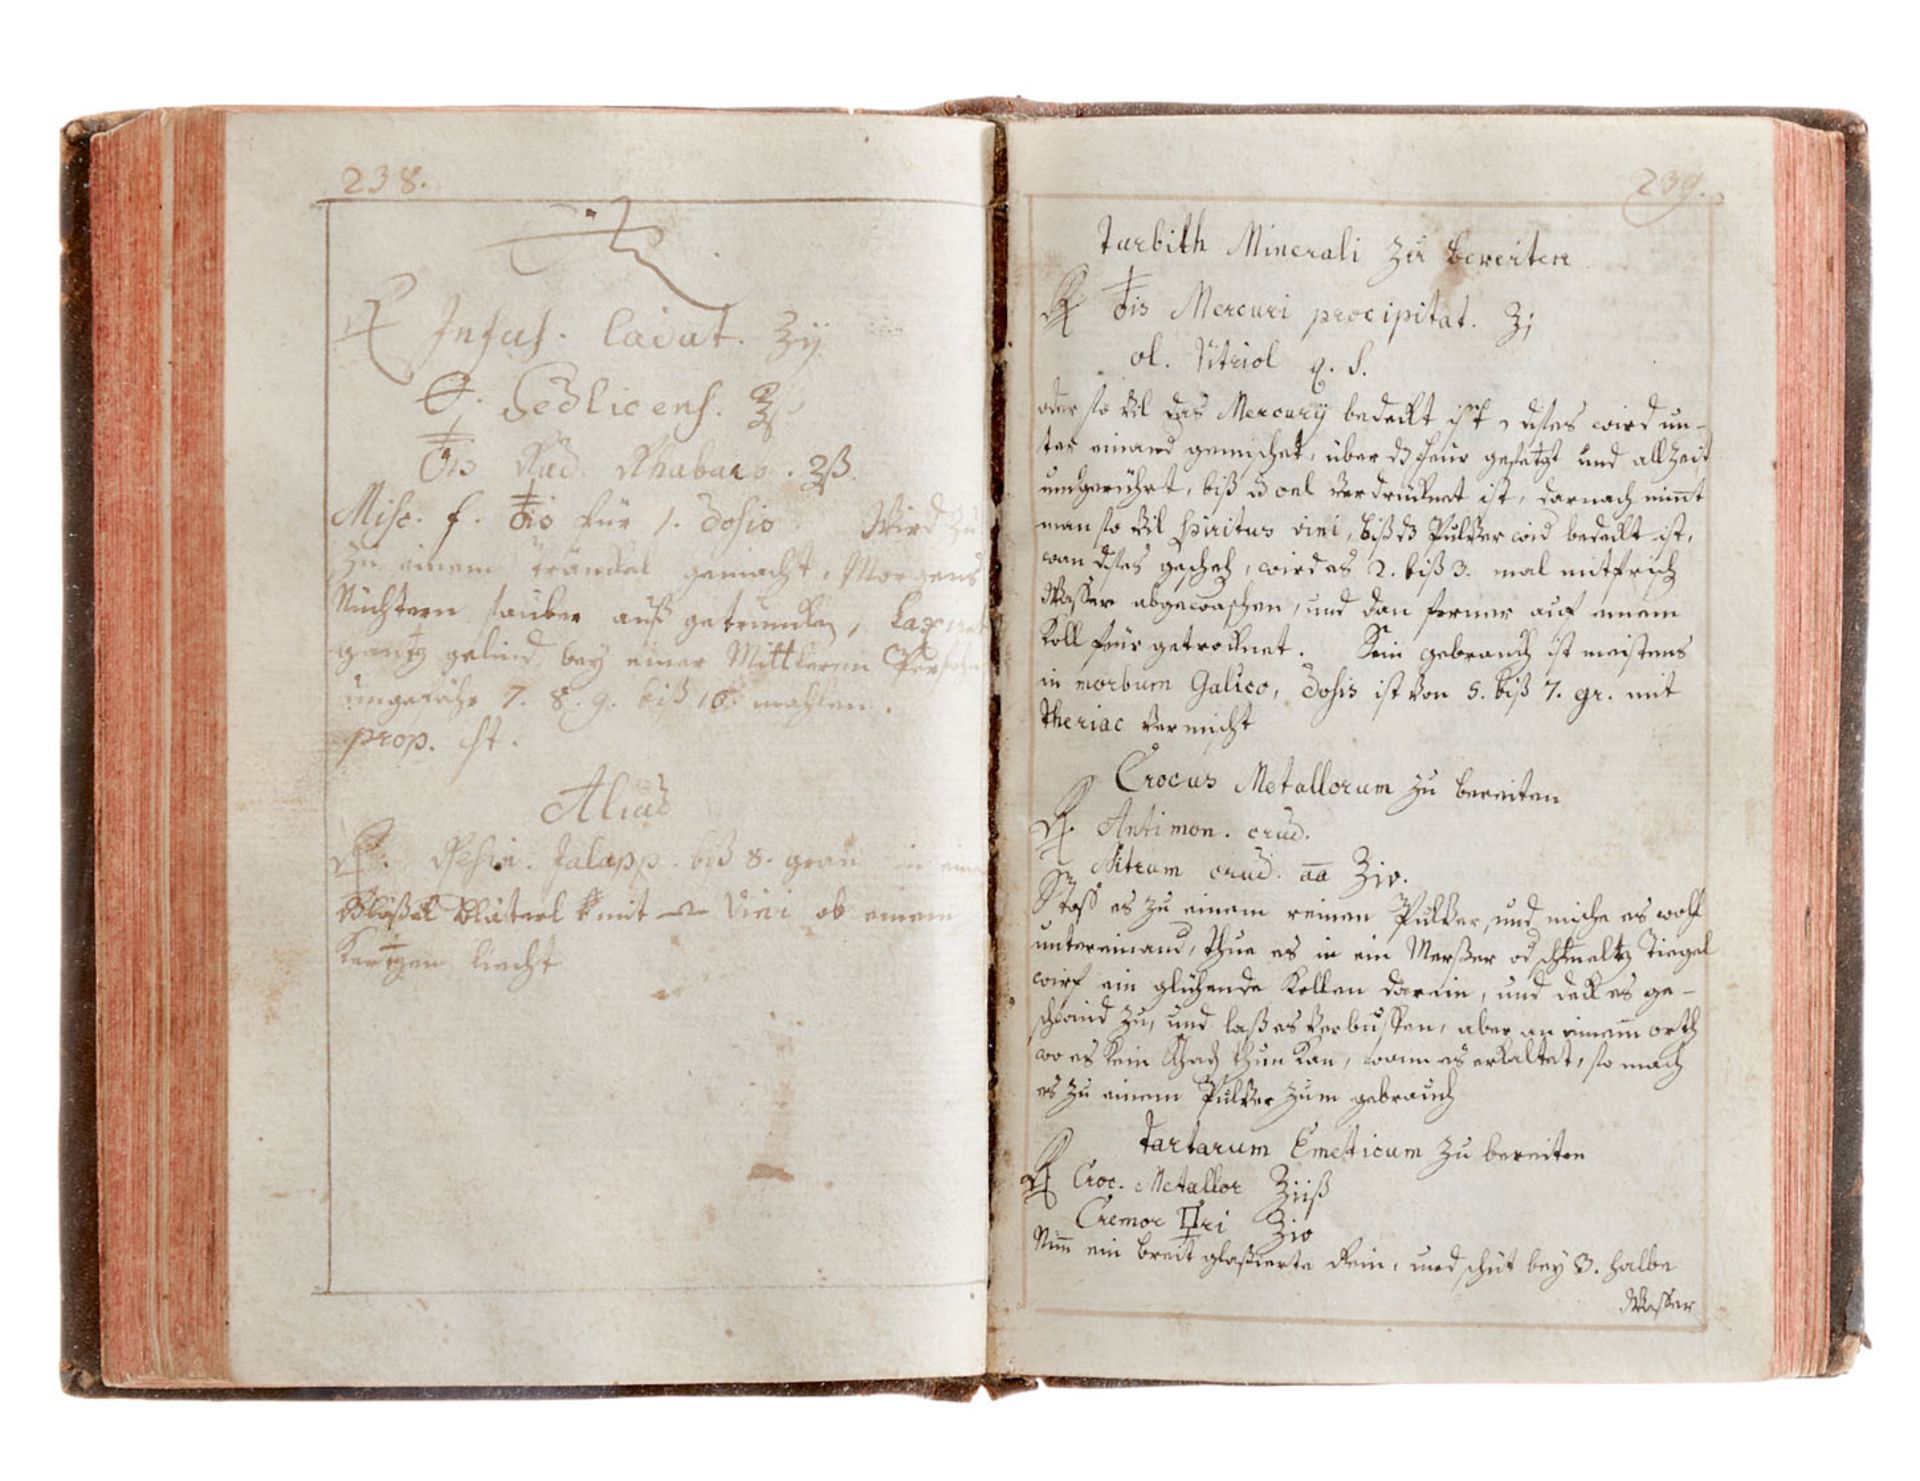 238.
℞ Infus. laxat. ʒij
Sedlicens. ʒ
♁is Rad. Rhabarb. ʒß.
Misc. f. ♁is für 1. Dosis Wird zu
zu einem tränckel gemacht, Morgens
Nüchtern sauber auß getruncken, Laxiert
gantz gelind, bey einer Mittleren Persohn
ungefähr 7. 8. 9. biß 10. mahlen.
prop. st.
Aliud
℞. Resin. Jalapp. biß 8. gran in ein
Bläterl mit Vini ob einem
Kertzen liecht
239.
Turbith Minerali zu bereiten
℞ ♁is Mercuri procipitat. ʒj
ol. Vitriol q. s.
oder so vil das Mercurij bedeckt ist, dises wird un-
ter einand gemischet, über dz feur gesetzt und allzeit
umgerührt, biß dz oel verdrücknet ist, darnach nimt
man so vil Spiritus vini, biß dz Pulver wid bedeckt ist,
wan dises gescheh, wird es 2. biß 3. mal mit frisch
Wasser abgewaschen, und dan ferner auf einem
Koll feür getrocknet. Sein gebrauch ist meistens
in morbum Galico, Dosis ist von 5. biß 7. gr. mit
Theriac vermischt
Crocus Metallorum zu bereiten
℞. Antimon. crud.
Nitrum crud. aa ʒiv.
Stoß es zu einem reinen Pulver, und mische es wohl
untereinand, thue es in ein Merßer od schmeltz Tiegel
wirf ein glühende Kollen darein, und deck es ge-
schwind zu, und laß es verbuffen, aber an einem orth
wo es kein schad thun kan, wann es erkaltet, so mach
es zu einem Pulver zum gebrauch
Tartarum Emeticum zu bereiten
℞ Croc. Metallor ʒiiß
Cremor 🜿ri ʒiv
Nim ein breit glaßierte Rein, und schüt bey 3. halbe
Wasser